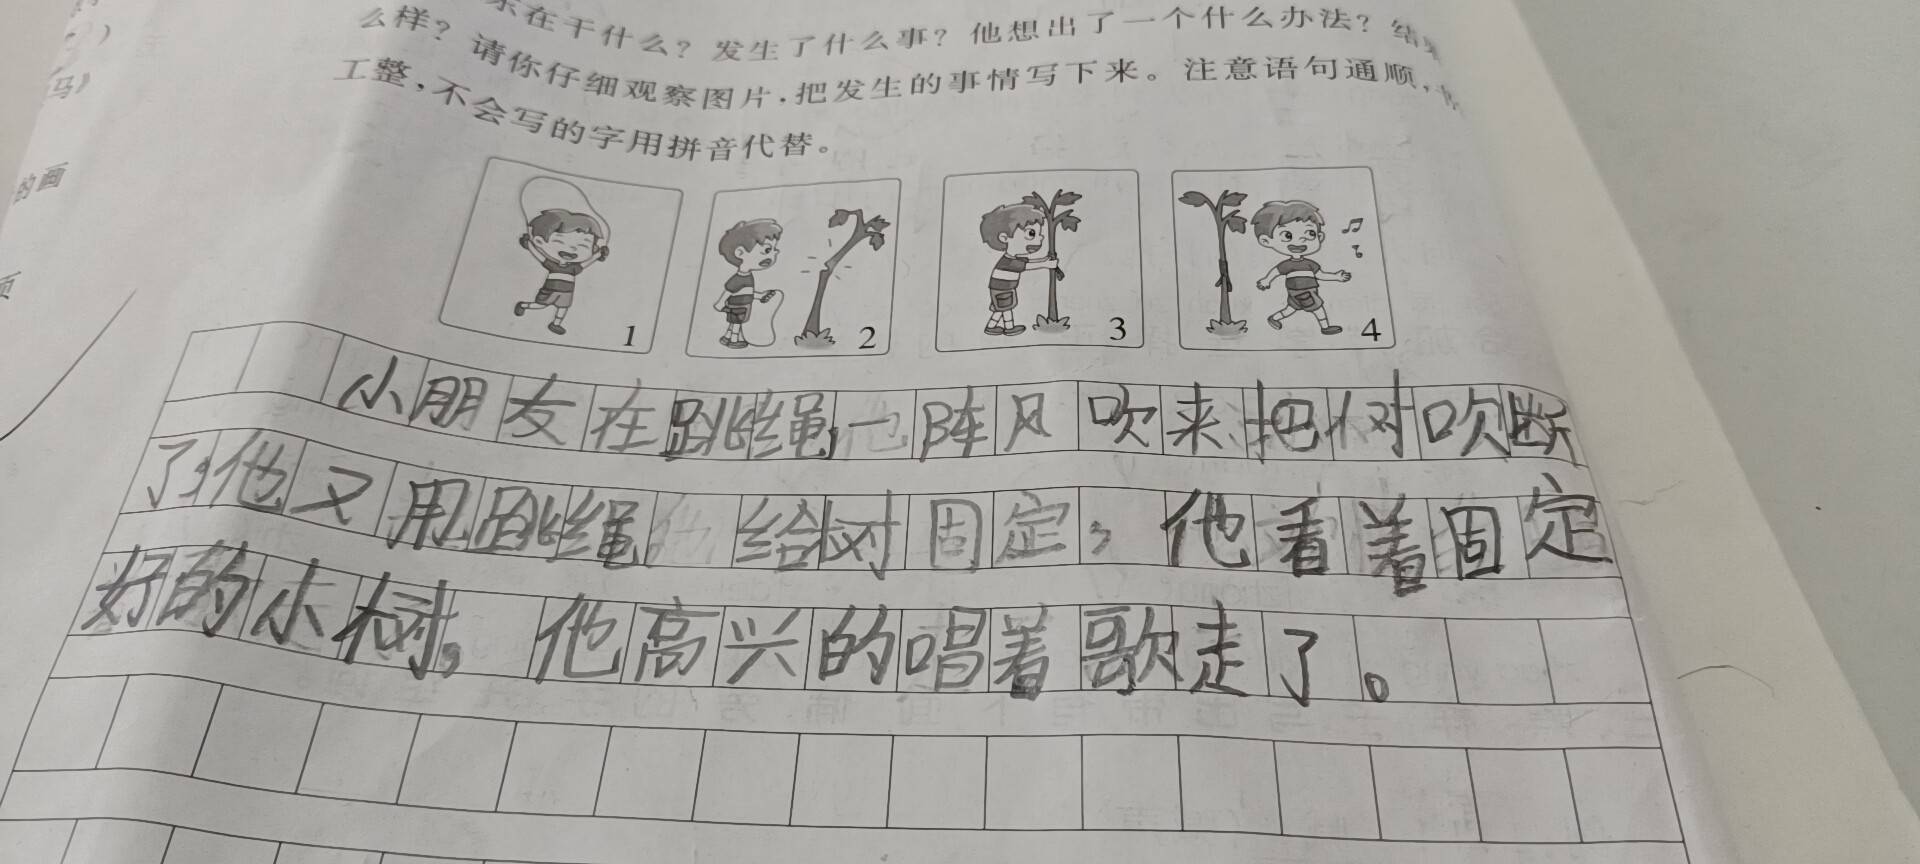 在干什么？发生了什么事？他想出了一个什么办法？结
么样？请你仔细观察图片，把发生的事情写下来。注意语句通顺，
工整，不会写的字用拼音代替。
马》
的画
1
2
3
4
小朋友在跳绳，一阵风吹来把树吹断
了，他又用跳绳给树固定，他看着固定
好的小树，他高兴的唱着歌走了。